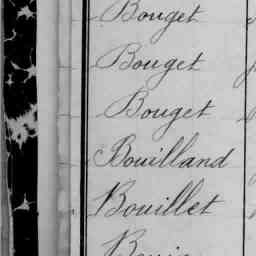 Bouget
Bouget
Bouget
Bouilland
Bouillet